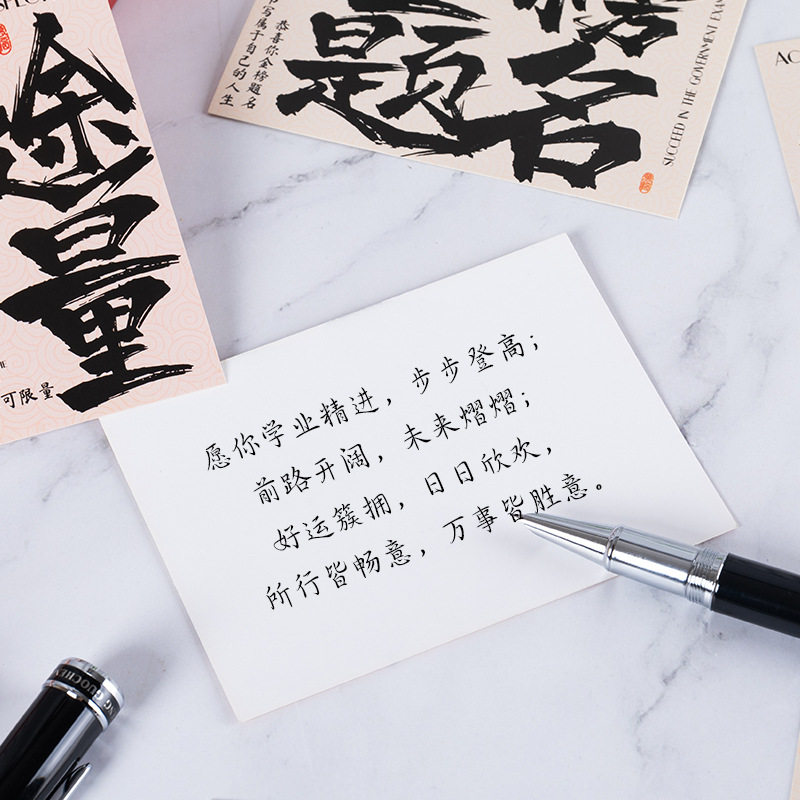 途
量
可限量
榜
题
名
恭喜你金榜题名
书写属于自己的人生
SUCCEED IN THE GOVERNMENT EXAM
AC
愿你学业精进，步步登高；
前路开阔，未来熠熠；
好运簇拥，日日欣欢，
所行皆畅意，万事皆胜意。
GUOCHEN